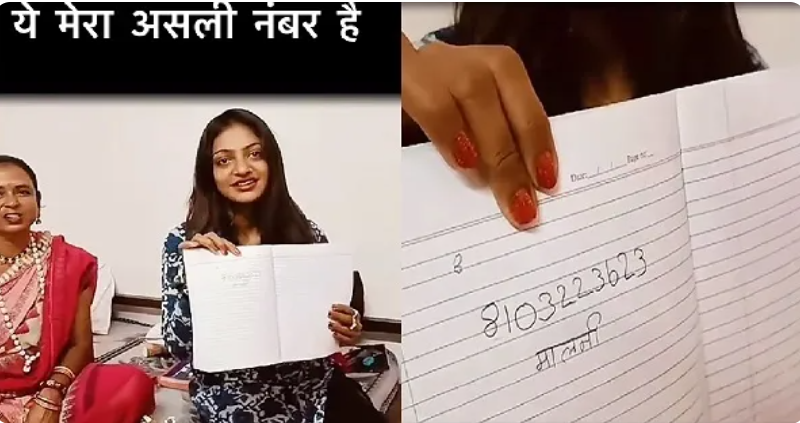 ये मेरा असली नंबर है
Date / / Page no.
8
8103223623
मालनी